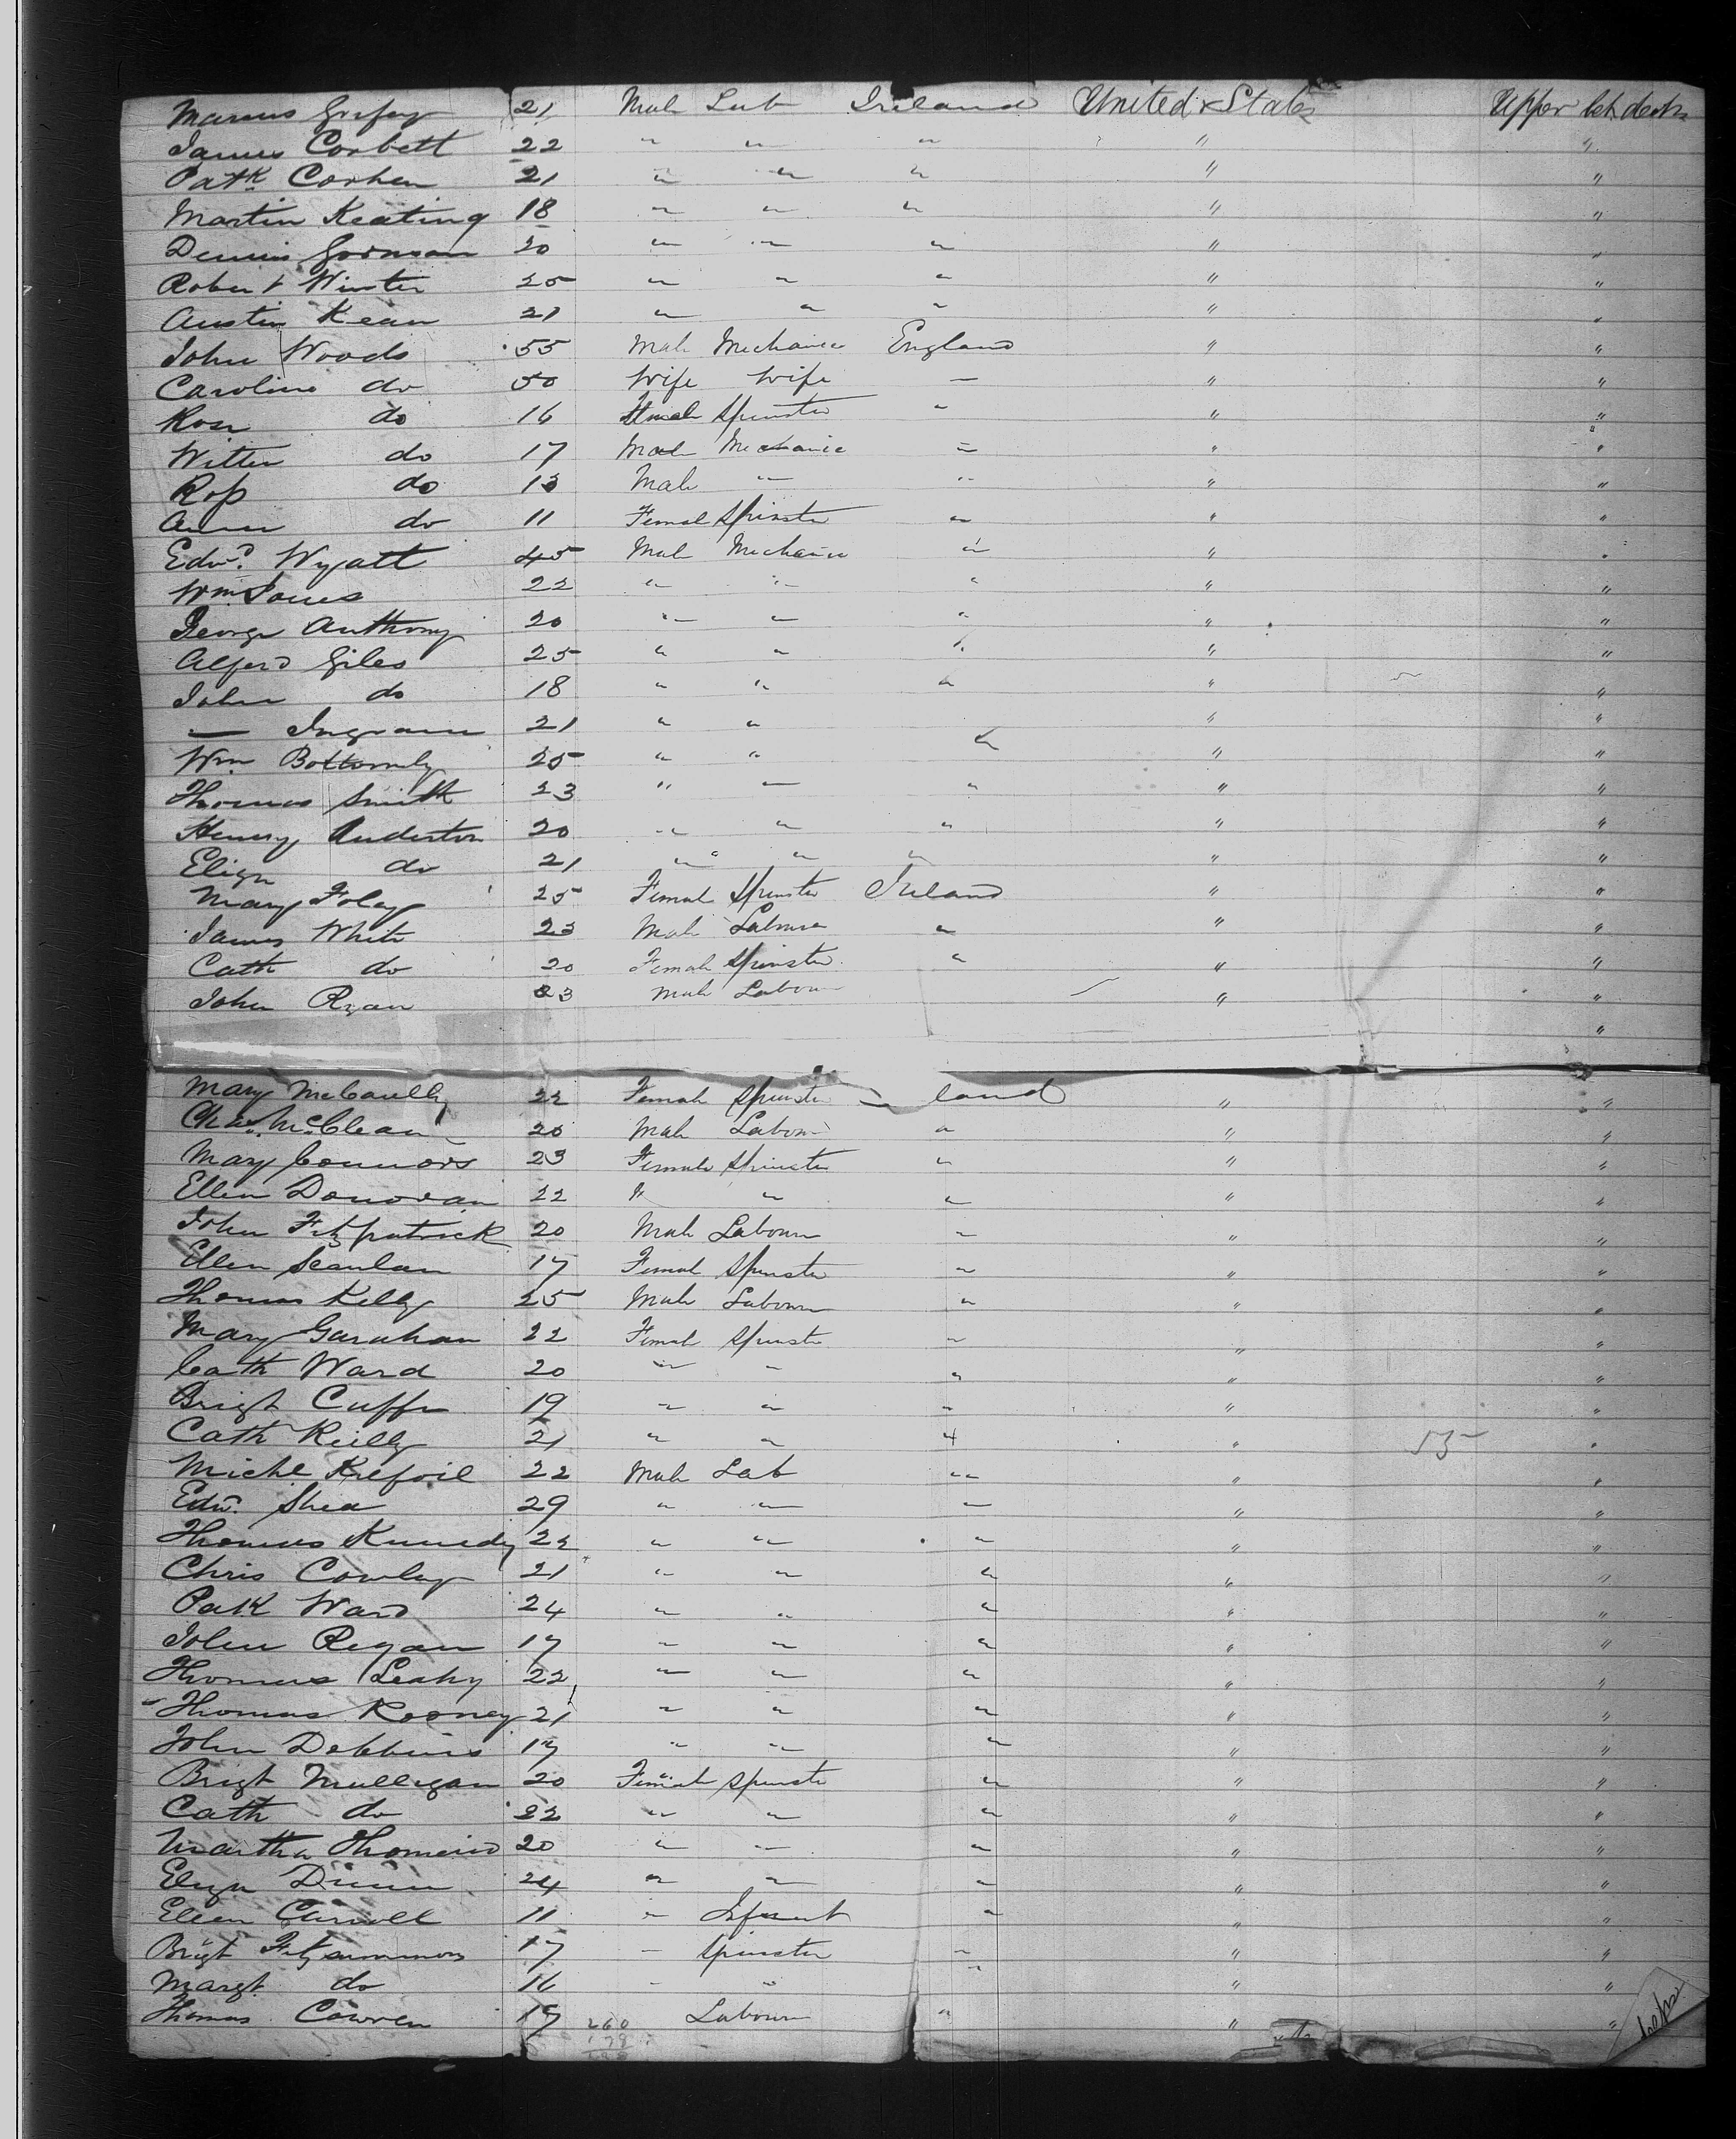 Marcus 21 Male Lab Ireland United States Upper bet. decks
James Corbett 22 " " " " "
Patk Corhen 21 " " " " "
Martin Keating 18 " " " " "
Dennis Gorman 20 " " " " "
Robert Winter 25 " " " " "
Austin Kean 21 " " " " "
John Woods 55 Male Mechanic England " "
Caroline do 50 Wife Wife " " "
Rose do 16 Female Spinster " " "
Witten do 17 Male Mechanic " " "
Ross do 13 Male " " " "
Ann do 11 Female Spinster " " "
Edwd. Wyatt 45 Male Mechanic " " "
Wm Jones 22 " " " " "
George Anthony 20 " " " " "
Alferd Giles 25 " " " " "
John do 18 " " " " "
— Ingram 21 " " " "
Wm Bottomly 25 " " " " "
Thomas Smith 23 " " " " "
Henry Anderton 20 " " " " "
Eliza do 21 " " " " "
Mary Foley 25 Female Spinster Ireland " "
James White 23 Male Labourer " " "
Cath do 20 Female Spinster " " "
John Ryan 23 Male Labour " "
"
Mary McCaully 22 Female Spinster land " "
Chas. McClean 20 Male Labour " " "
Mary Connors 23 Female Spinster " " "
Ellen Donovan 22 " " " " "
John Fitzpatrick 20 Male Labour " " "
Ellen Scanlan 17 Female Spinster " " "
Thomas Kelly 25 Male Labour " " "
Mary Garahan 22 Female Spinster " " "
Cath Ward 20 " " " " "
Brigt Cuffe 19 " " " " "
Cath Reilly 21 " " " " "
Michl Kilfoil 22 Male Lab " " "
Edwd. Shea 29 " " " " "
Thomas Kennedy 22 " " " " "
Chris Cowley 21 " " " " "
Patk Ward 24 " " " " "
John Regan 17 " " " " "
Thomas Leahy 22 " " " " "
Thomas Rooney 21 " " " " "
John Debbins 17 " " " " "
Brigt Mulligan 20 Female Spinster " " "
Cath do 22 " " " " "
Martha 20 " " " " "
Eliza Dunn 24 " " " " "
Ellen Carroll 11 " Infant " " "
Brigt Fitzsimmons 17 " Spinster " " "
Margt. do 16 " " " " "
Thomas Cowren 17 Labour " " "
260
178